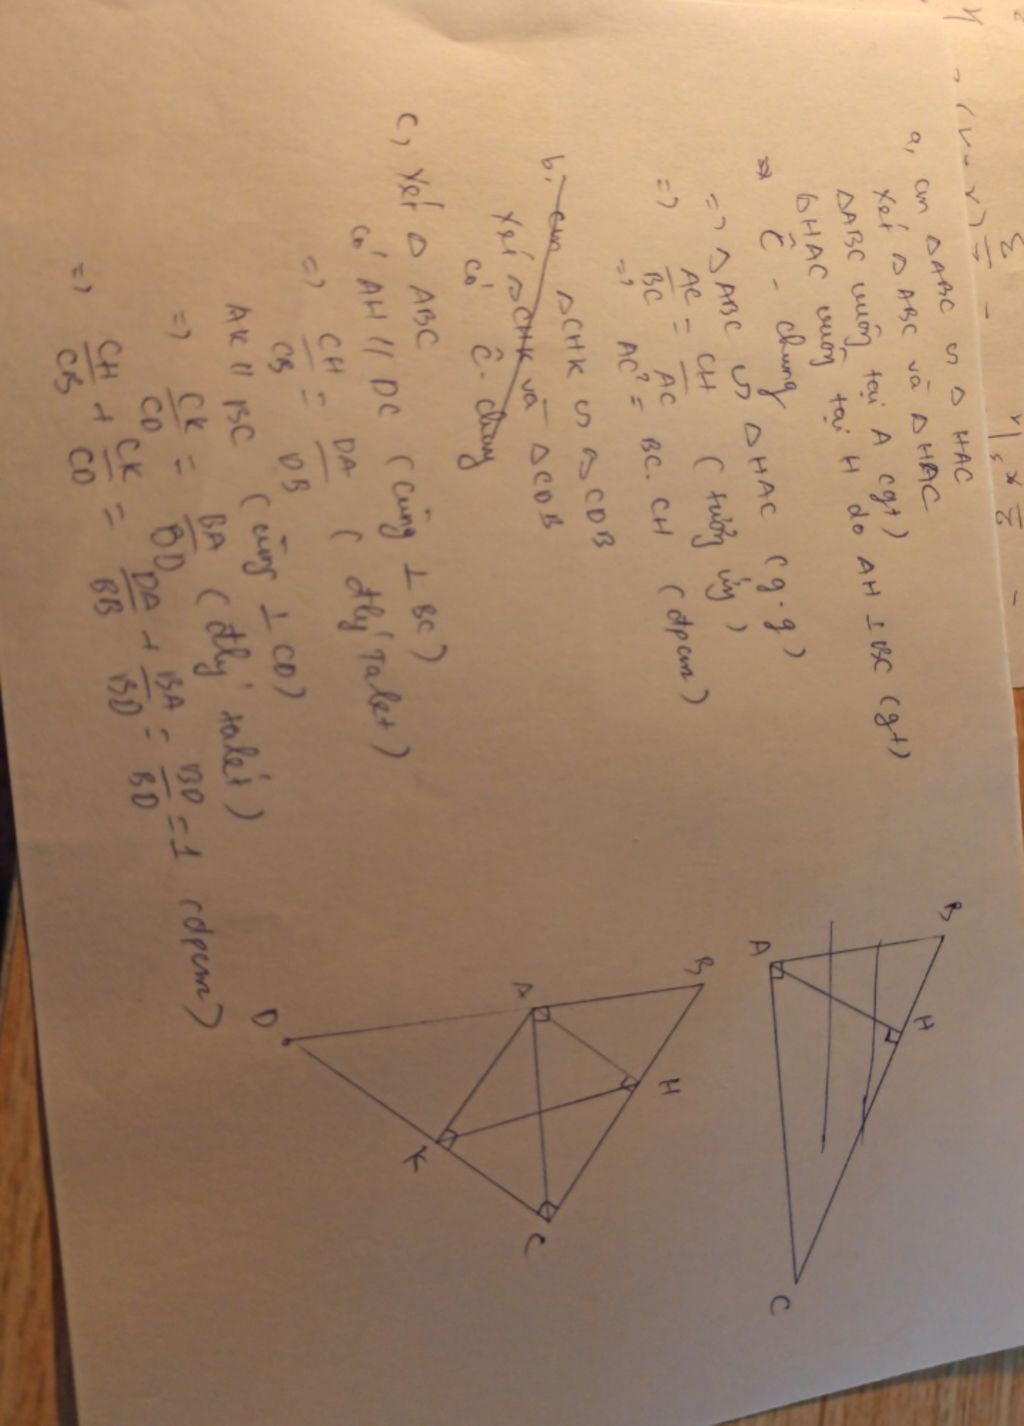 a, cm ΔABC ∽ Δ HAC
Xét Δ ABC và Δ HAC
ΔABC vuông tại A (gt)
ΔHAC vuông tại H do AH ⊥ BC (gt)
Ĉ - chung
=> ΔABC ∽ ΔHAC (g.g)
=> AC/BC = CH/AC (tương ứng)
=> AC² = BC.CH (đpcm)
b, cm ΔCHK ∽ ΔCDB
Xét ΔCHK và ΔCDB
có Ĉ - chung
c, Xét Δ ABC
có AH // DC (cùng ⊥ BC)
=> CH/CB = DA/DB (đlý Talet)
AK // BC (cùng ⊥ CD)
=> CK/CD = BA/BD (đlý talét)
=> CH/CB + CK/CD = DA/BB + BA/BD = BD/BD = 1 (đpcm)
B
A
H
C
B
A
H
D
K
C